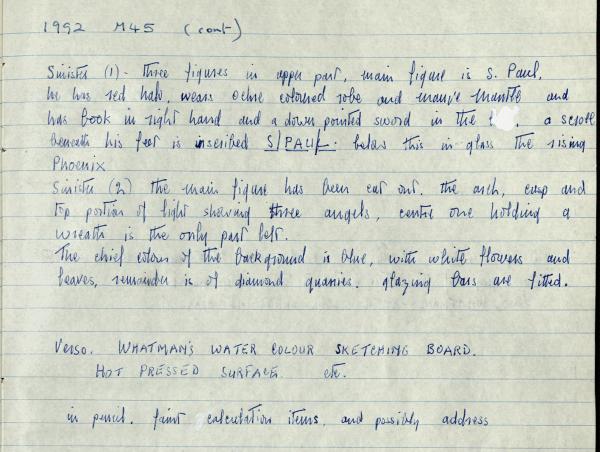 1992 M45 (cont)
Sinister (1) - three figures in upper part, main figure is S. Paul,
he has red halo, wears ochre coloured robe and mauve mantle and
has book in right hand and a down pointed sword in the l . a scroll
beneath his feet is inscribed S/PAUL. below this in glass the rising
Phoenix
Sinister (2) the main figure has been cut out. the arch, cusp and
top portion of light showing three angels, centre one holding a
wreath is the only part left.
The chief colour of the background is blue, with white flowers and
leaves, remainder is of diamond quarries. glazing bars are fitted.
Verso. WHATMAN'S WATER COLOUR SKETCHING BOARD.
HOT PRESSED SURFACE etc.
in pencil. faint calculation items, and possibly address